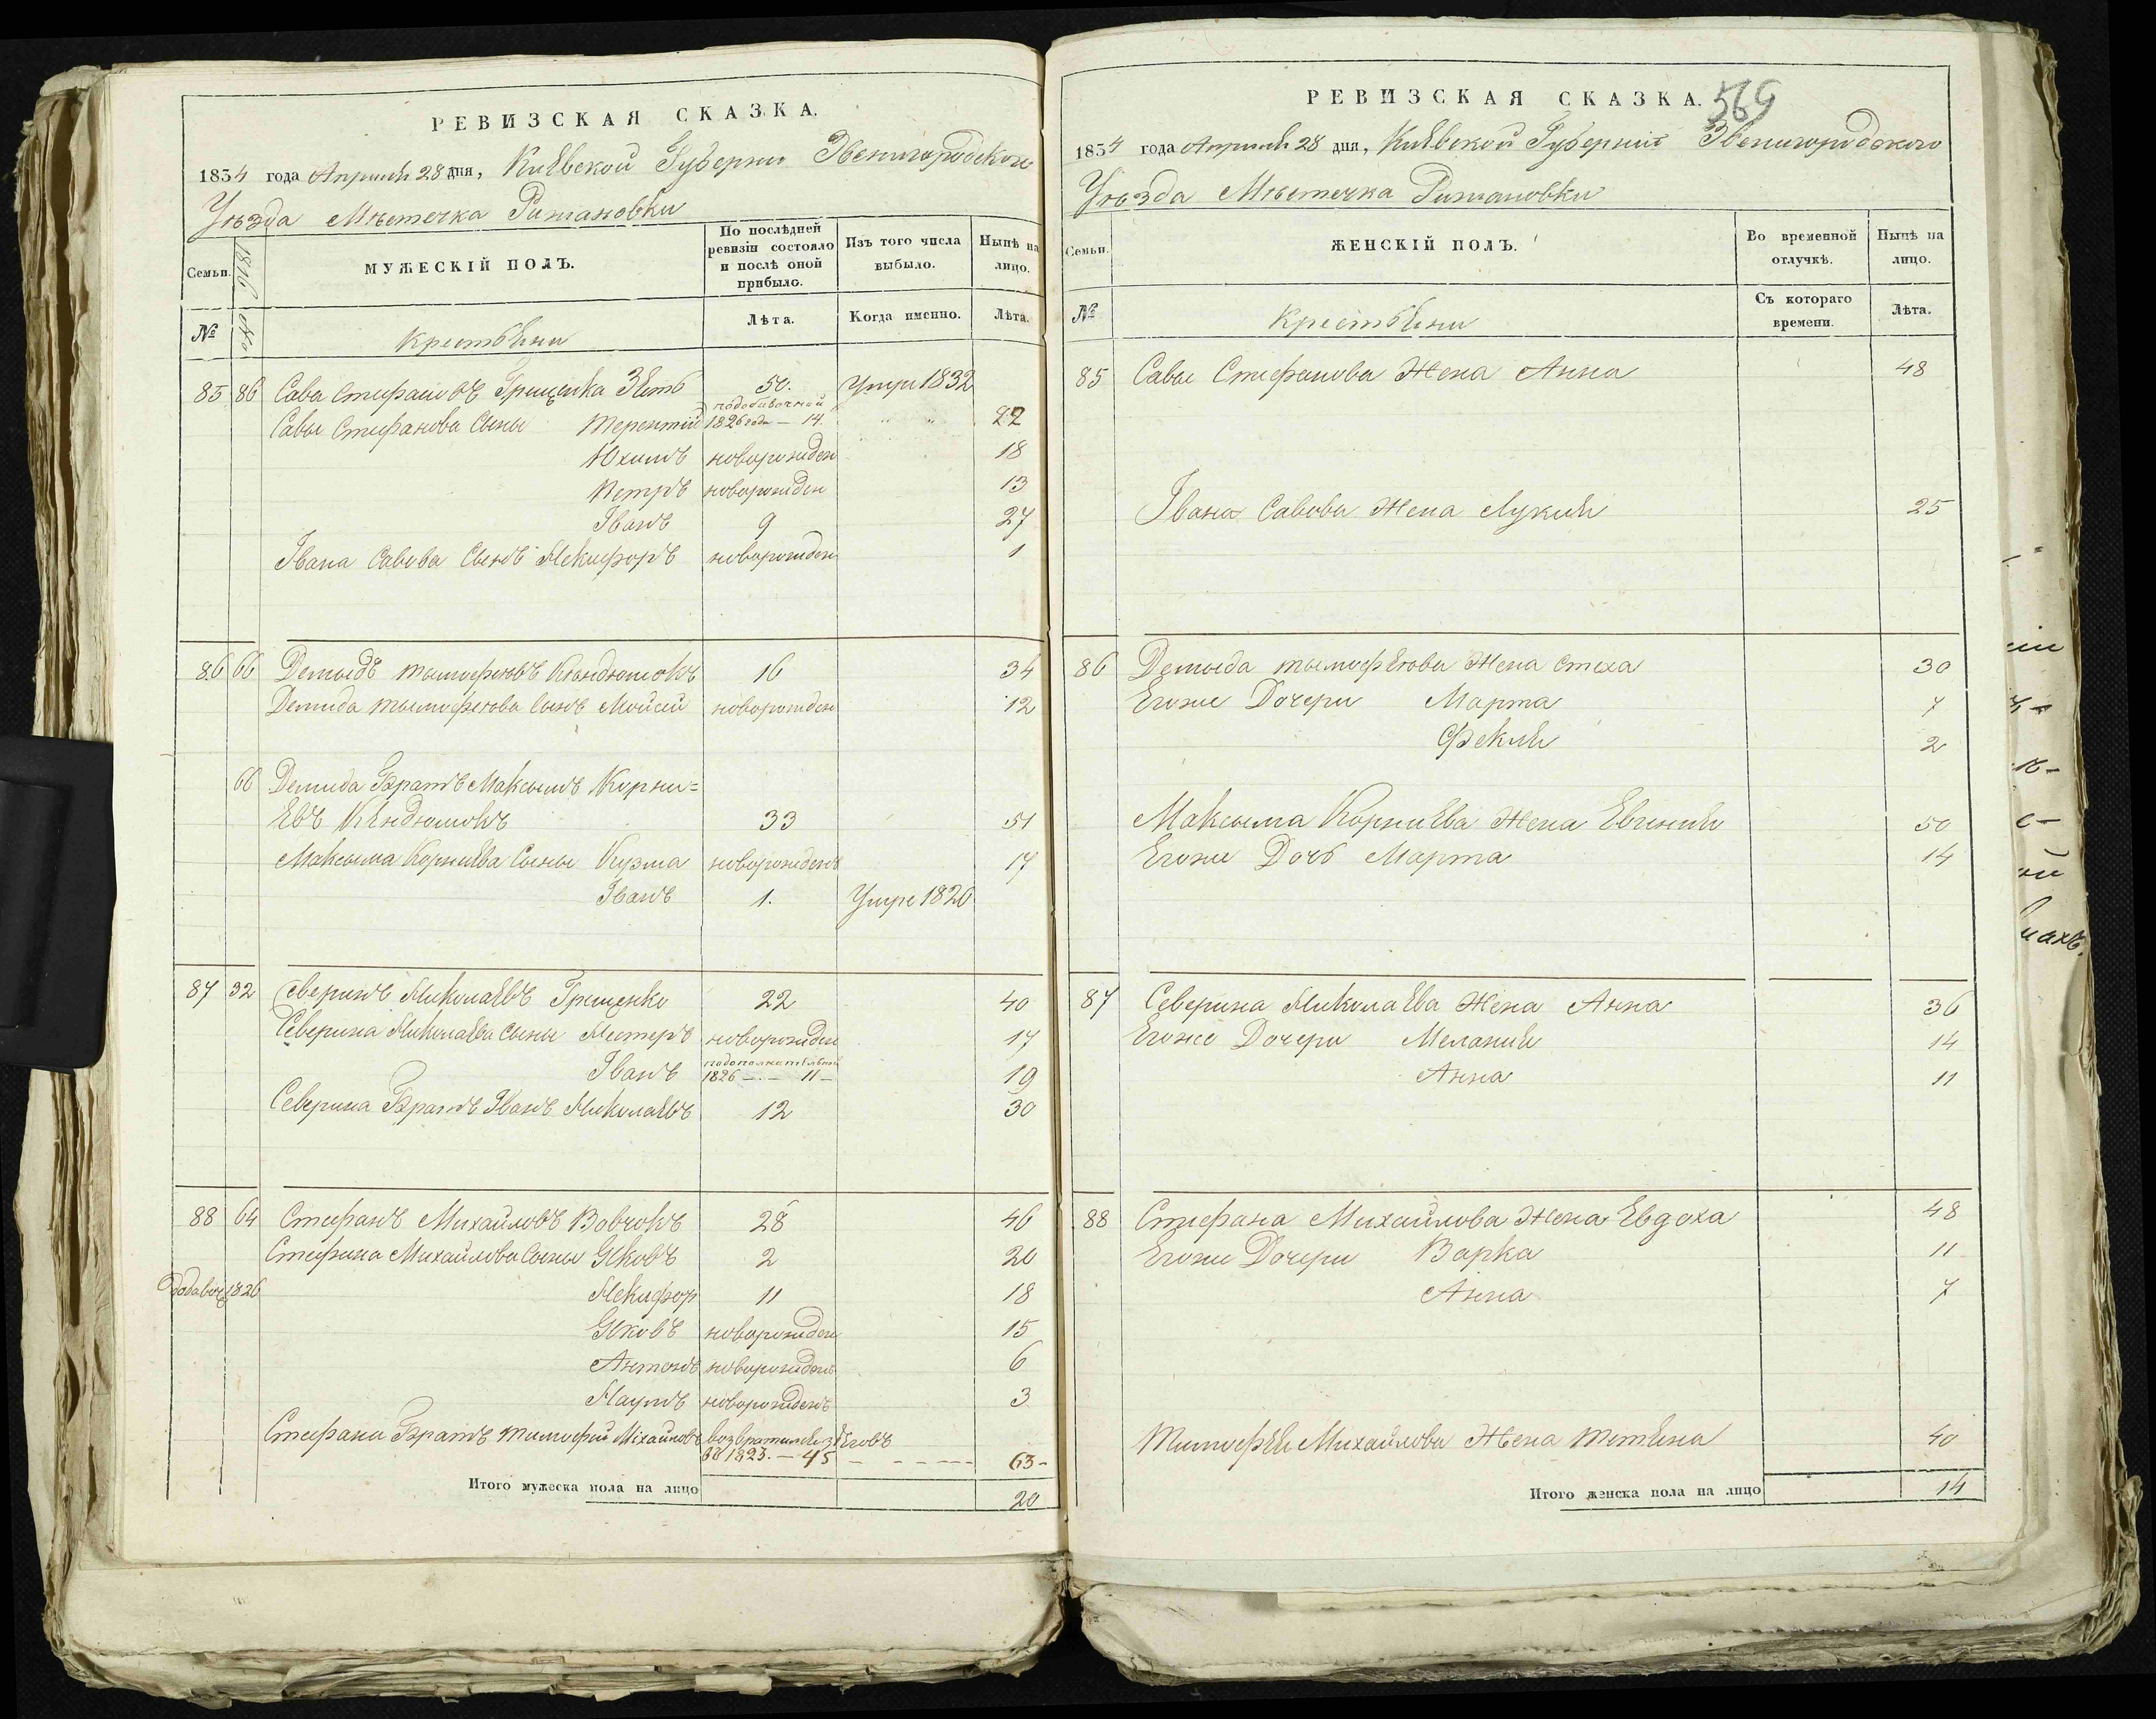 РЕВИЗСКАЯ СКАЗКА.
1834 года Апрѣля 28 дня, Кіевской Губерніи Звенигородского
Уѣзда Мѣстечка Рижановки
Семьи. 1816 года
МУЖЕСКІЙ ПОЛЪ.
По послѣдней ревизіи состояло и послѣ оной прибыло.
Изъ того числа выбыло.
Нынѣ на лицо.
№ Крестьяни Лѣта. Когда именно. Лѣта.
85 86 Сава Стефановъ Грищенка Зять 50. Умре 1832
Савы Стефанова Сыны Терентій по добавочной 1826 года — 14. 22
Юхимъ новорожден 18
Петръ новорожден 13
Іванъ 9 27
Івана Савова Сынъ Никифоръ новорожден 1
86 66 Демидъ Тымофеювъ 16 34
Демида Тымофеюва Сынъ Мойсей новорожден 12
66 Демида Братъ Максымъ Корни=
евъ 33 51
Максыма Корніева Сыны Кузма новорожденъ 17
Іванъ 1. Умре 1820
87 32 Северинъ Николаевъ Грищенко 22 40
Северина Николаева Сыны Нестеръ новорожден 17
Іванъ 1826 — 11 — 19
Северина Братъ Іванъ Николаевъ 12 30
88 64 Стефанъ Михайловъ Вовчокъ 28 46
Стефана Михайлова Сыны Яковъ 2 20
1826 Никифор 11 18
Яковъ новорожден 15
Антонъ новорожденъ 6
Наумъ новорожденъ 3
Стефана Братъ Тимофій Міхайловъ возвратился з бѣговъ
въ 1823. — 45 — — — — 63 —
Итого мужеска пола на лицо 20
РЕВИЗСКАЯ СКАЗКА. 569
1834 года Апрѣля 28 дня, Кіевской Губерніи Звенигородского
Уѣзда Мѣстечка Рижановки
Семьи.
ЖЕНСКІЙ ПОЛЪ.
Во временной отлучкѣ.
Нынѣ на лицо.
№ Крестьяни Съ котораго времени. Лѣта.
85 Савы Стефанова Жена Анна 48
Івана Савова Жена Лукия 25
86 Демыда Тымофеюва Жена Стеха 30
Егоже Дочери Марта 7
Фекля 2
Максыма Корніева Жена Евгения 50
Егоже Дочь Марта 14
87 Северина Николаева Жена Анна 36
Егоже Дочери Мелания 14
Анна 11
88 Стефана Михайлова Жена Евдоха 48
Егоже Дочери Варка 11
Анна 7
Тимофея Михайлова Жена Тетяна 40
Итого женска пола на лицо 14